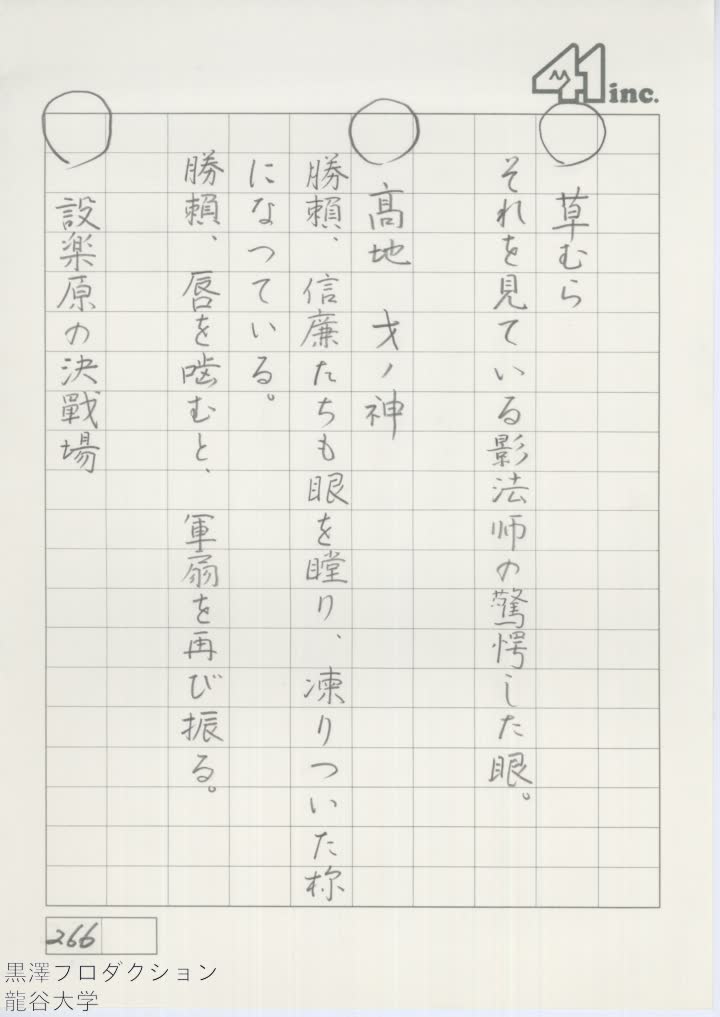 41 inc.
○ 草むら
それを見ている影法師の驚愕した眼。
○ 高地 才ノ神
勝頼、信廉たちも眼を瞠り、凍りついた様
になっている。
勝頼、唇を噛むと、軍扇を再び振る。
○ 設楽原の決戰場
266
黒澤プロダクション
龍谷大学